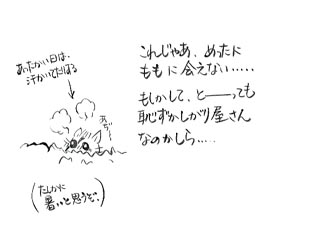 あったかい日は、
汗かいてだれる
あぢー
(たしかに
暑いと思うぞ。)
これじゃあ、めったに
ももに会えない……
もしかして、と──っても
恥ずかしがり屋さん
なのかしら…..